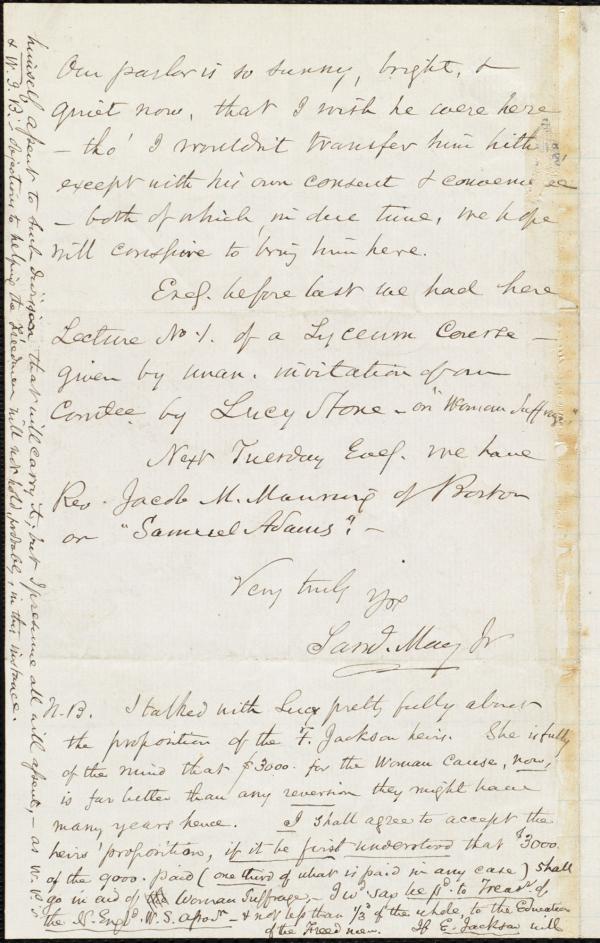 Our parlor is so sunny, bright, &
quiet now, that I wish he were here
- tho' I wouldn't transfer him hither
except with his own consent & convenience
- both of which, in due time, we hope
will conspire to bring him here.
Eveg. before last we had here
Lecture No. 1. of a Lyceum Course -
given by unan. invitation of our
Comtee. by Lucy Stone - on "Woman Suffrage."
Next Tuesday Eveg. we have
Rev. Jacob M. Manning of Boston
on "Samuel Adams". -
Very truly yrs
Saml. May Jr
N.B. I talked with Lucy pretty fully about
the proposition of the F. Jackson heirs. She is fully
of the mind that $3000. for the Woman Cause, now,
is far better than any reversion they might have
many years hence. I shall agree to accept the
heirs' proposition, if it be first understood that $3000.
of the 9000. paid (one third of what is paid in any case) shall
go in aid of Woman Suffrage, - I wd. say be pd. to Treasr. of
the N. Engd. W.S. Asson. - & not less than 1/3d. of the whole, to the Education
of the Freedmen. If E. Jackson will
himself assent to such division that will carry it; but I presume all will assent, - as W. P.'s
& W. I. B.'s objections to helping the Freedmen will not hold, probably, in this instance.